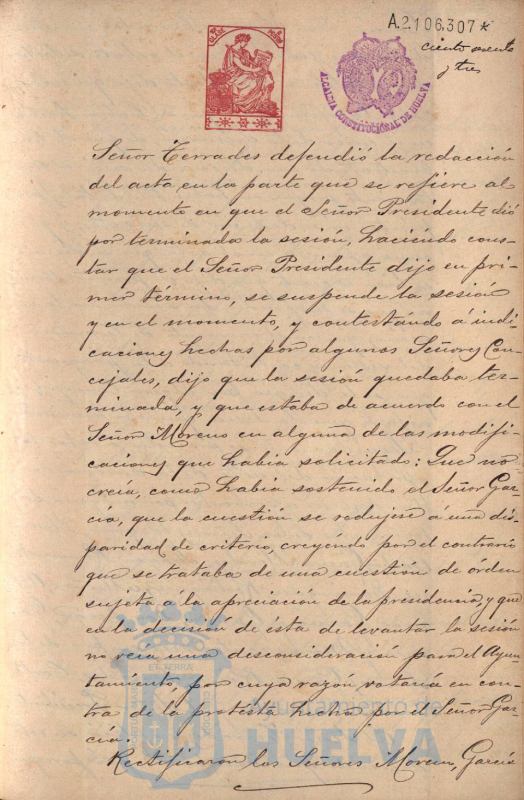 A.2.106,307*
ciento sesenta
y tres
ALCALDIA CONSTITUCIONAL DE HUELVA
Señor Terrades defendió la redacción
del acta en la parte que se refiere al
momento en que el Señor Presidente dió
por terminada la sesión, haciéndo cons-
tar que el Señor Presidente dijo en pri-
mer término, se suspende la sesión
y en el momento, y contestándo á indi-
caciones hechas por algunos Señores Con-
cejales, dijo que la sesión quedaba ter-
minada, y que estaba de acuerdo con el
Señor Moreno en alguna de las modifi-
caciones que habia solicitado: Que no
creía, como habia sostenido el Señor Gar-
cía, que la cuestión se redujese á una dis-
paridad de criterio, creyéndo por el contrario
que se trataba de una cuestión de orden
sujeta á la apreciación de la presidencia, y que
en la decisión de ésta de levantar la sesión
no veía una desconsideración para el Ayun-
tamiento, por cuya razón votaría en con-
tra de la protésta hecha por el Señor Gar-
cía.
Rectificaron los Señores Moreno, García
Ayuntamiento de
HUELVA